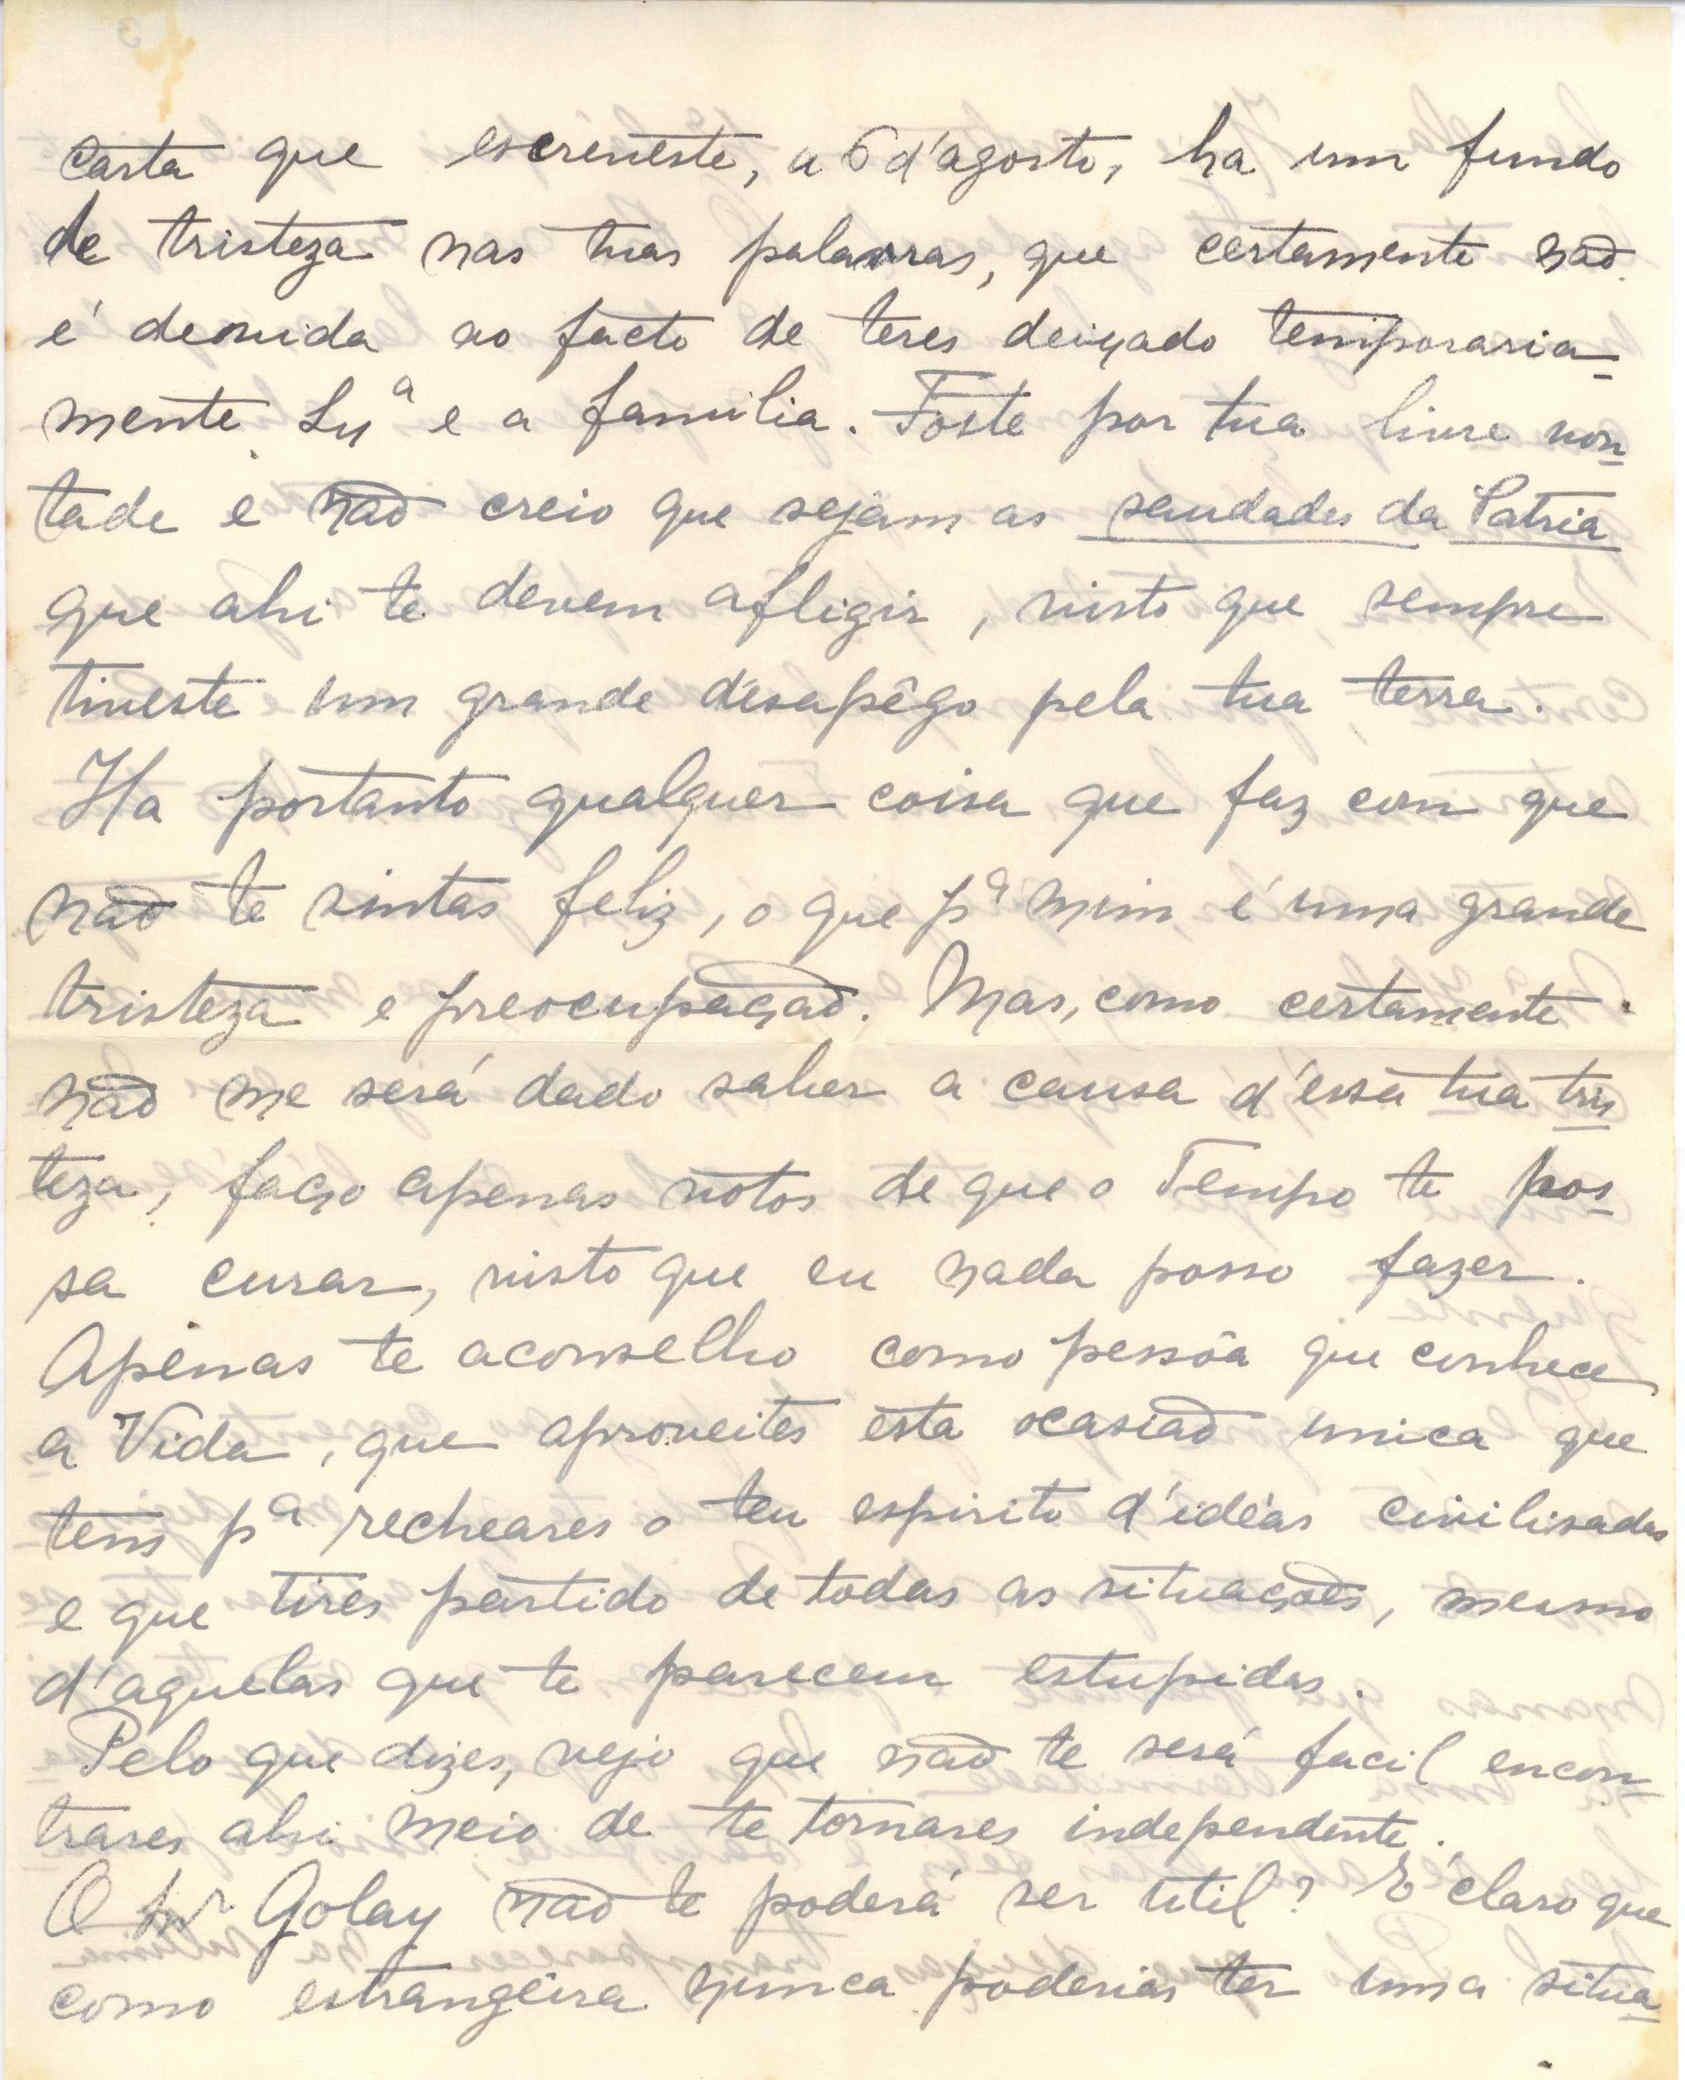 carta que escreveste, a 6 d'agosto, ha um fundo
de tristeza nas tuas palavras, que certamente não
é devida ao facto de teres deixado temporaria-
mente Lxª e a familia. Foste por tua livre von-
tade e não creio que sejam as saudades da Patria
que ahi te devem afligir, visto que sempre
tiveste um grande desapêgo pela tua terra.
Ha portanto qualquer coisa que faz com que
não te sintas feliz, o que pª mim, é uma grande
tristeza e preocupação. Mas, como certamente
não me será dado saber a causa d'essa tua tris
teza, faço apenas votos de que o Tempo te pos-
sa curar, visto que eu nada posso fazer.
Apenas te aconselho como pessôa que conhece
a Vida, que aproveites esta ocasião unica que
tens pª recheares o teu espirito d'idéas civilisadas
e que tires partido de todas as situações, mesmo
d'aquelas que te parecem estupidas.
Pelo que dizes, vejo que não te será facil encon-
trares ahi meio de te tornares independente.
O Snr Golay não te poderá ser util? É claro que
como estrangeira nunca poderias ter uma situa-